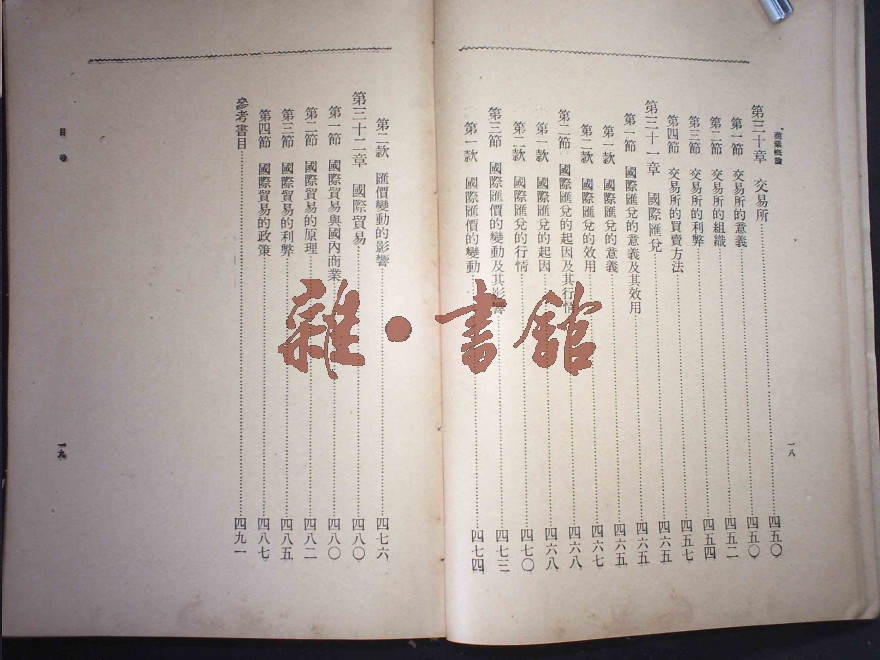 商業概論
第三十章 交易所……四五〇
第一節 交易所的意義……四五〇
第二節 交易所的組織……四五二
第三節 交易所的利弊……四五四
第四節 交易所的買賣方法……四五七
第三十一章 國際匯兌……四六五
第一節 國際匯兌的意義及其效用……四六五
第一款 國際匯兌的意義……四六五
第二款 國際匯兌的效用……四六七
第二節 國際匯兌的起因及其行情……四六八
第一款 國際匯兌的起因……四六八
第二款 國際匯兌的行情……四七〇
第三節 國際匯價的變動及其影響……四七三
第一款 國際匯價的變動……四七四
一八
第二款 匯價變動的影響……四七六
第三十二章 國際貿易……四八〇
第一節 國際貿易與國內商業……四八〇
第二節 國際貿易的原理……四八二
第三節 國際貿易的利弊……四八五
第四節 國際貿易的政策……四八七
參考書目……四九一
目
一九
雜·書館